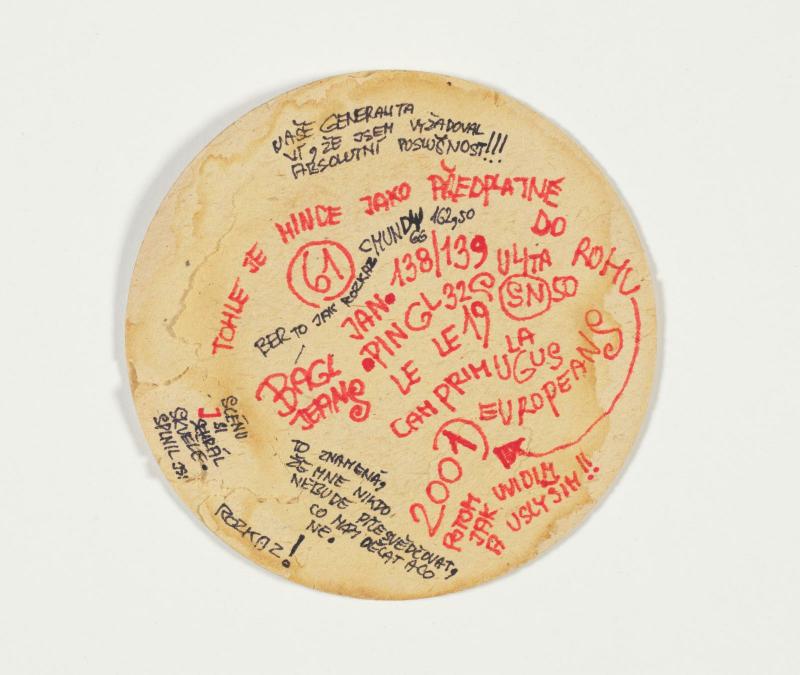 VAŠE GENERALITA
VÍ, ŽE JSEM VYŽADOVAL
ABSOLUTNÍ POSLUŠNOST!!!
TOHLE JE MINCE JAKO PŘEDPLATNÉ
DO ROHU
61
CMUNDW 162,50
66
BER TO JAK ROZKAZ
BÁGL JAN. 138/139 ULITA
JEANS .PINGL 32S SN 50
LE LE 19
CAMPRIMULGUS
LA
EUROPEANS
2001
POTOM
JAK UVIDÍM
A USLYŠÍM!!
SCÉNU
JSI
SEHRÁL
SKVĚLE.
SPLNIL JSI
ROZKAZ!
TO ZNAMENÁ,
ŽE MNE NIKDO
NEBUDE PŘESVĚDČOVAT,
CO MÁM DĚLAT A CO
NE.